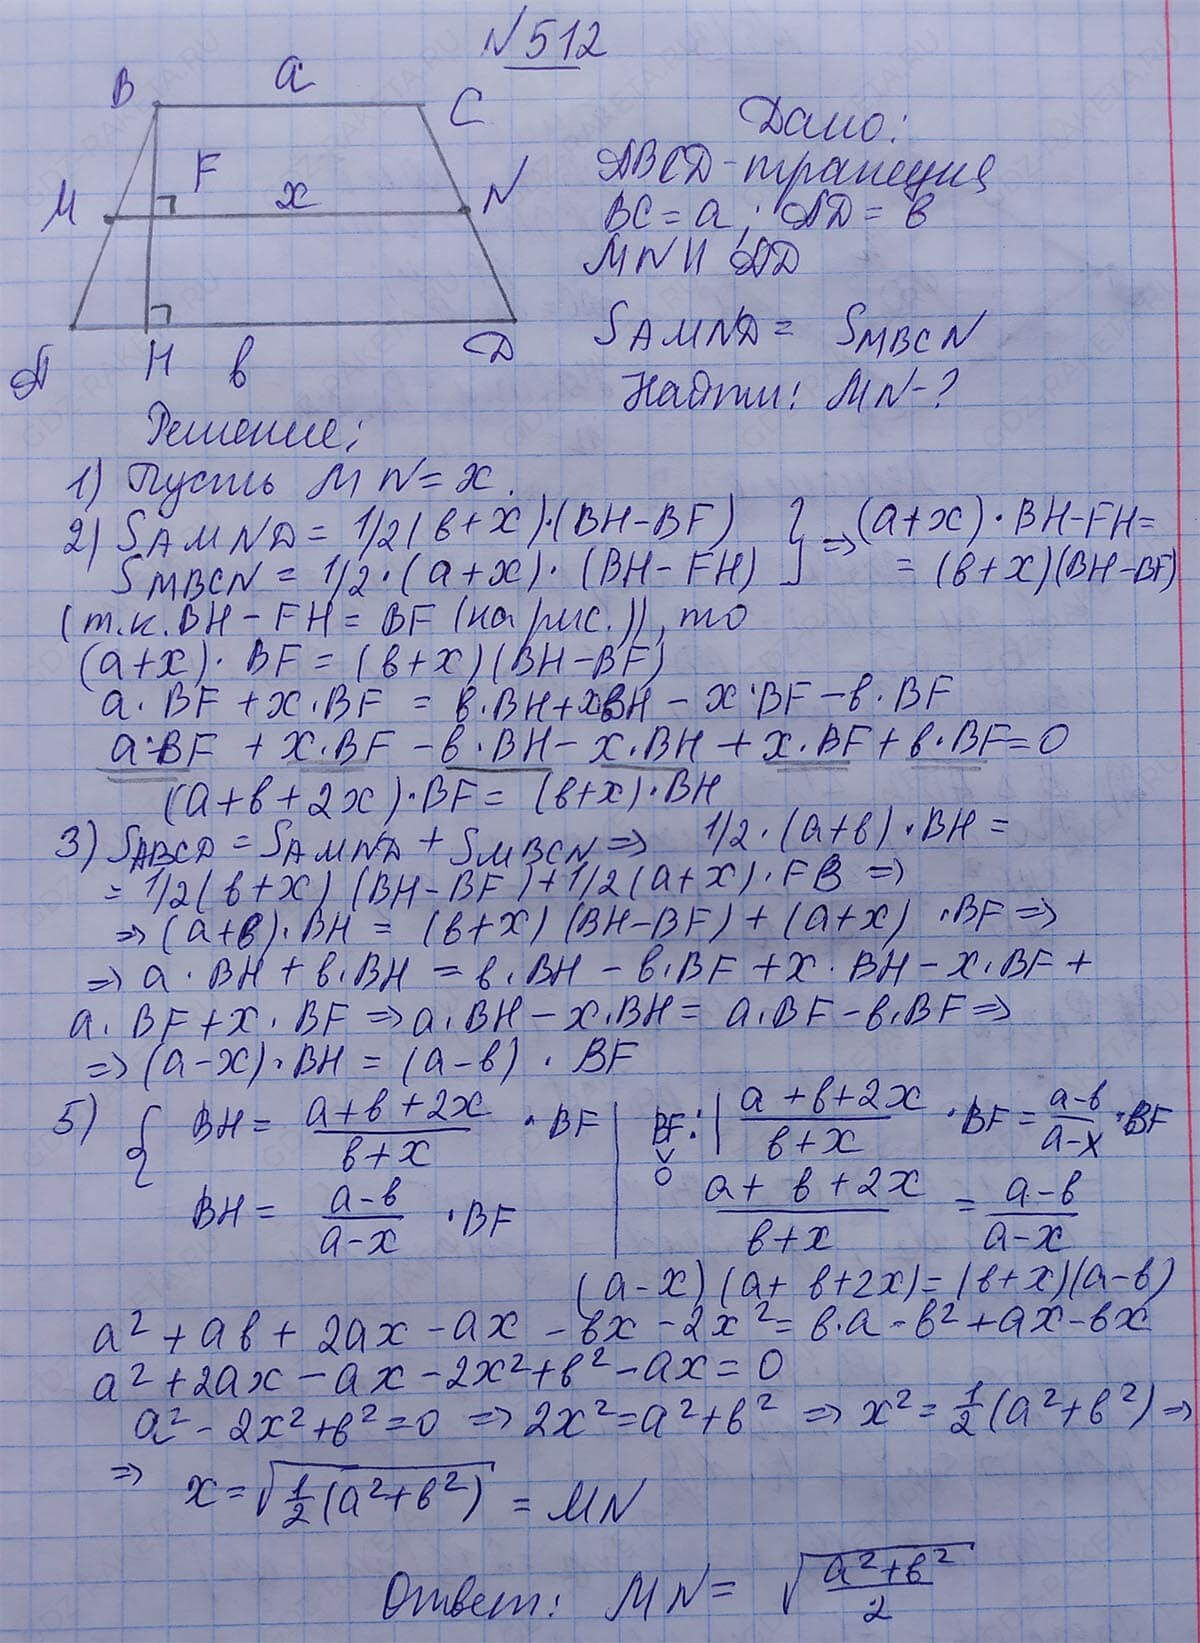 N 512
B a C
M F x N
A H в D
Дано:
ABCD - трапеция
BC = a; AD = в
MN || AD
S AMND = S MBCN
Найти: MN - ?
Решение:
1) Пусть MN = x.
2) S AMND = 1/2 (в + x)·(BH - BF)
S MBCN = 1/2·(a+x)·(BH - FH)
} => (a+x)·BH-FH =
= (в+x)(BH-BF)
(т.к. BH - FH = BF (на рис.)), то
(a+x)· BF = (в+x)(BH-BF)
a·BF + x·BF = в·BH + xBH - x·BF - в·BF
a·BF + x·BF - в·BH - x·BH + x·BF + в·BF = 0
(a+в+2x)·BF = (в+x)·BH
3) S ABCD = S AMND + S MBCN => 1/2·(a+в)·BH =
= 1/2 (в+x) (BH-BF) + 1/2 (a+x)·FB =>
=> (a+в)·BH = (в+x) (BH-BF) + (a+x) ·BF =>
=> a·BH + в·BH = в·BH - в·BF + x·BH - x·BF +
a·BF + x·BF => a·BH - x·BH = a·BF - в·BF =>
=> (a-x)·BH = (a-в) · BF
5) { BH = (a+в+2x)/(в+x) ·BF | BF: | (a+в+2x)/(в+x) ·BF = (a-в)/(a-x) ·BF
BH = (a-в)/(a-x) ·BF | (a+в+2x)/(в+x) = (a-в)/(a-x)
(a-x)(a+в+2x) = (в+x)(a-в)
a² + aв + 2ax - ax - вx - 2x² = в·a - в² + ax - вx
a² + 2ax - ax - 2x² + в² - ax = 0
a² - 2x² + в² = 0 => 2x² = a² + в² => x² = 1/2 (a² + в²) =>
=> x = √(1/2 (a² + в²)) = MN
Ответ: MN = √((a² + в²)/2)